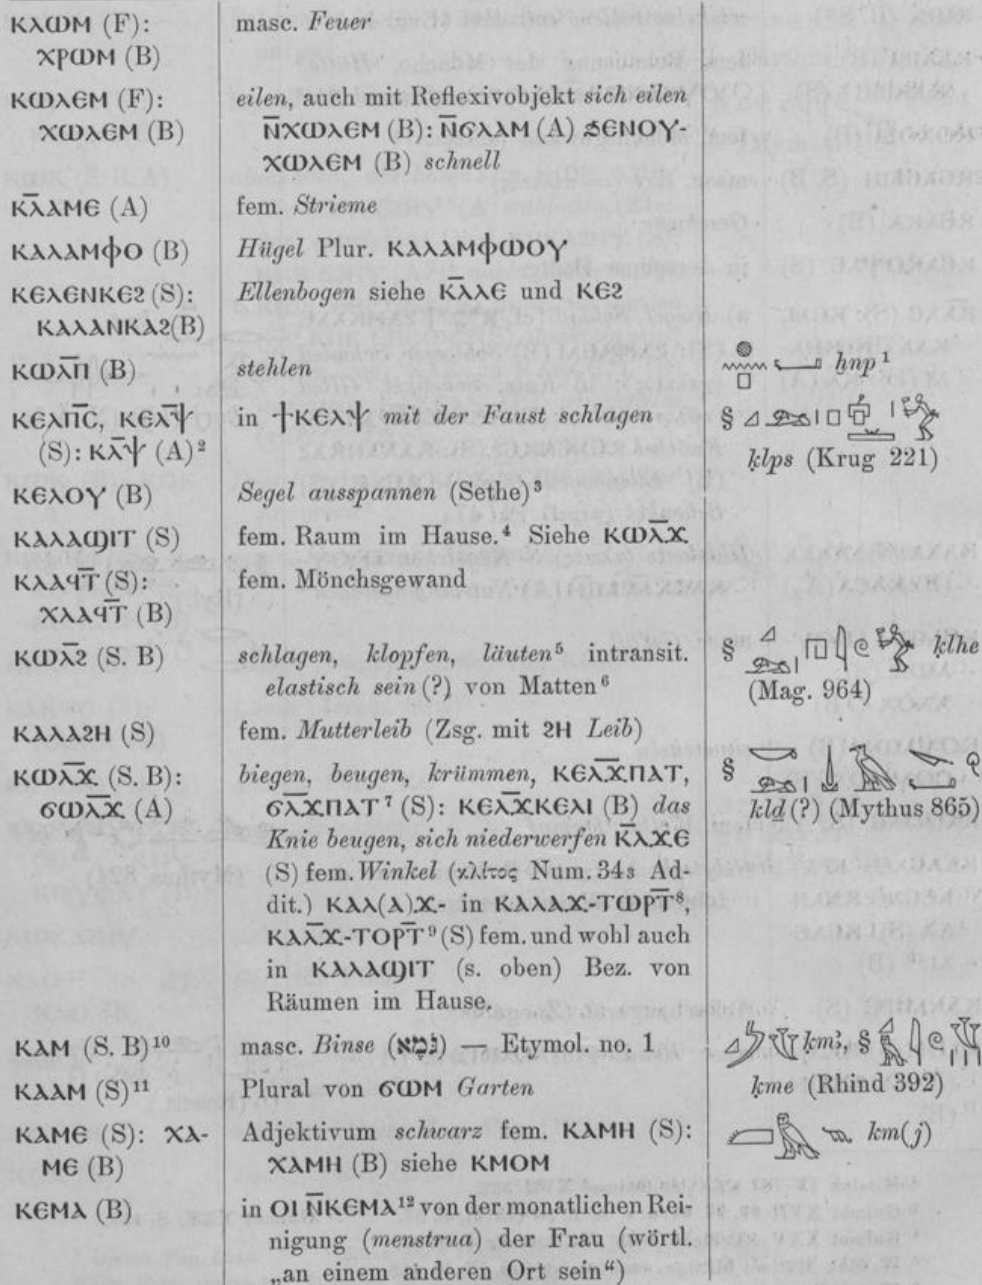 ⲕⲗⲱⲙ (F): masc. Feuer
ⲭⲣⲱⲙ (B)
ⲕⲱⲗⲉⲙ (F): eilen, auch mit Reflexivobjekt sich eilen
ⲭⲱⲗⲉⲙ (B) ⲛ̄ⲭⲱⲗⲉⲙ (B): ⲛ̄ϭⲗⲁⲙ (A) ϧⲉⲛⲟⲩ-
ⲭⲱⲗⲉⲙ (B) schnell
ⲕⲗ̄ⲁⲙⲉ (A) fem. Strieme
ⲕⲁⲗⲁⲙⲫⲟ (B) Hügel Plur. ⲕⲁⲗⲁⲙⲫⲱⲟⲩ
ⲕⲉⲗⲉⲛⲕⲉϩ (S): Ellenbogen siehe ⲕⲗ̄ⲗⲉ und ⲕⲉϩ
ⲕⲁⲗⲁⲛⲕⲁϩ(B)
ⲕⲱⲗⲡ̄ (B) stehlen ḫnp¹
ⲕⲉⲗⲡ̄ⲥ, ⲕⲉⲗⲯ̄ in ϯⲕⲉⲗⲯ mit der Faust schlagen §
(S): ⲕⲗ̄ⲯ (A)² ḳlps (Krug 221)
ⲕⲉⲗⲟⲩ (B) Segel ausspannen (Sethe)³
ⲕⲁⲗⲁϣⲓⲧ (S) fem. Raum im Hause.⁴ Siehe ⲕⲱⲗ̄ϫ
ⲕⲗⲁϥⲧ̄ (S): fem. Mönchsgewand
ⲭⲗⲁϥⲧ̄ (B)
ⲕⲱⲗ̄ϩ (S. B) schlagen, klopfen, läuten⁵ intransit. § ḳlhe
elastisch sein (?) von Matten⁶ (Mag. 964)
ⲕⲁⲗⲁϩⲏ (S) fem. Mutterleib (Zsg. mit ϩⲏ Leib)
ⲕⲱⲗ̄ϫ (S. B): biegen, beugen, krümmen, ⲕⲉⲗ̄ϫⲡⲁⲧ, §
ϭⲱⲗ̄ϫ (A) ϭⲗ̄ϫⲡⲁⲧ⁷ (S): ⲕⲉⲗ̄ϫⲕⲉⲗⲓ (B) das kld̲(?) (Mythus 865)
Knie beugen, sich niederwerfen ⲕⲗ̄ϫⲉ
(S) fem. Winkel (κλίτος Num. 34₃ Ad-
dit.) ⲕⲁⲗ(ⲁ)ϫ- in ⲕⲁⲗⲁϫ-ⲧⲱⲣⲧ̄⁸,
ⲕⲁⲗ̄ϫ-ⲧⲟⲣⲧ̄⁹ (S) fem. und wohl auch
in ⲕⲁⲗⲁϣⲓⲧ (s. oben) Bez. von
Räumen im Hause.
ⲕⲁⲙ (S. B)¹⁰ masc. Binse (גֹּמֶא) — Etymol. no. 1 ḳmꜣ, §
ⲕⲁⲁⲙ (S)¹¹ Plural von ϭⲱⲙ Garten ḳme (Rhind 392)
ⲕⲁⲙⲉ (S): ⲭⲁ- Adjektivum schwarz fem. ⲕⲁⲙⲏ (S): km(j)
ⲙⲉ (B) ⲭⲁⲙⲏ (B) siehe ⲕⲙⲟⲙ
ⲕⲉⲙⲁ (B) in ⲟⲓ ⲛ̄ⲕⲉⲙⲁ¹² von der monatlichen Rei-
nigung (menstrua) der Frau (wörtl.
„an einem anderen Ort sein“)